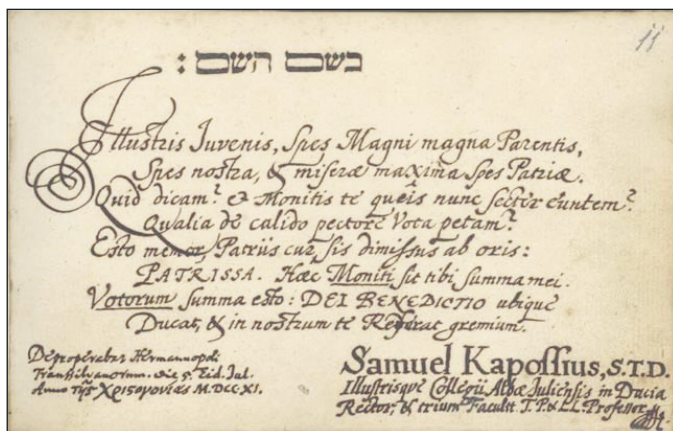 11
בשם השם :
Illustris Juvenis, Spes Magni magna Parentis,
Spes nostra, & miseræ maxima Spes Patriæ.
Quid dicam? & Monitis te queis nunc secter euntem?
Qualia de calido pectore Vota petam?
Esto memor, Patriis cur sis dimissus ab oris:
PATRISSA. Hæc Moniti sit tibi summa mei.
Votorum summa esto: DEI BENEDICTIO ubique
Ducat, & in nostrum te Referat gremium.
Deproperabar Hermannopoli
Transsilvanorum. die 5. Eid. Jul.
Anno τῆς Χριστογονίας M.DCC.XI.
Samuel Kapossius, S.T.D.
Illustrisque Collegii Albæ Juliensis in Dacia
Rector, & trium Facultt. T.P.& LL. Professor